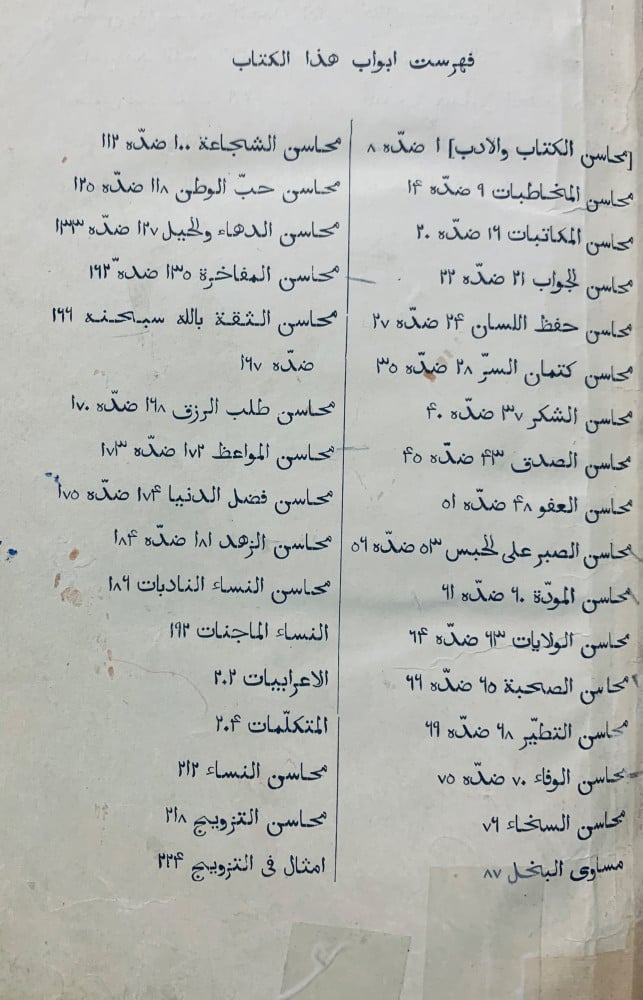 فهرست ابواب هذا الكتاب
[محاسن الكتاب والادب] ١ ضدّه ٨
محاسن المخاطبات ٩ ضدّه ١۴
محاسن المكاتبات ١٦ ضدّه ٢٠
محاسن الجواب ٢١ ضدّه ٢٢
محاسن حفظ اللسان ٢۴ ضدّه ٢٧
محاسن كتمان السرّ ٢٨ ضدّه ٣٥
محاسن الشكر ٣٧ ضدّه ۴٠
محاسن الصدق ۴٣ ضدّه ۴٥
محاسن العفو ۴٨ ضدّه ٥١
محاسن الصبر على الحبس ٥٣ ضدّه ٥٦
محاسن المودّة ٦٠ ضدّه ٦١
محاسن الولايات ٦٣ ضدّه ٦۴
محاسن الصحبة ٦٥ ضدّه ٦٦
محاسن التطيّر ٦٨ ضدّه ٦٩
محاسن الوفاء ٧٠ ضدّه ٧٥
محاسن السخاء ٧٦
مساوى البخل ٨٧
محاسن الشجاعة ١٠٠ ضدّه ١١٢
محاسن حبّ الوطن ١١٨ ضدّه ١٢٥
محاسن الدهاء والحيل ١٢٧ ضدّه ١٣٣
محاسن المفاخرة ١٣٥ ضدّه ١٦٢
محاسن الثقة بالله سبحنه ١٦٦
ضدّه ١٦٧
محاسن طلب الرزق ١٦٨ ضدّه ١٧٠
محاسن المواعظ ١٧٢ ضدّه ١٧٣
محاسن فضل الدنيا ١٧۴ ضدّه ١٧٥
محاسن الزهد ١٨١ ضدّه ١٨۴
محاسن النساء النادبات ١٨٦
النساء الماجنات ١٩٢
الاعرابيات ٢٠٢
المتكلّمات ٢٠۴
محاسن النساء ٢١٢
محاسن التزويج ٢١٨
امثال فى التزويج ٢٢۴